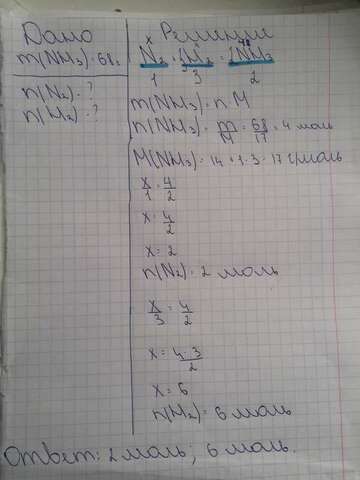 Дано
m(NH₃) = 68г
n(N₂) - ?
n(H₂) - ?
Решение
x
N₂ + 3H₂ = 2NH₃
1 3 2
m(NH₃) = n · M
n(NH₃) = m/M = 68/17 = 4 моль
M(NH₃) = 14 + 1 · 3 = 17 г/моль
x/1 = 4/2
x = 4/2
x = 2
n(N₂) = 2 моль
x/3 = 4/2
x = 4·3/2
x = 6
n(H₂) = 6 моль
Ответ: 2 моль; 6 моль.